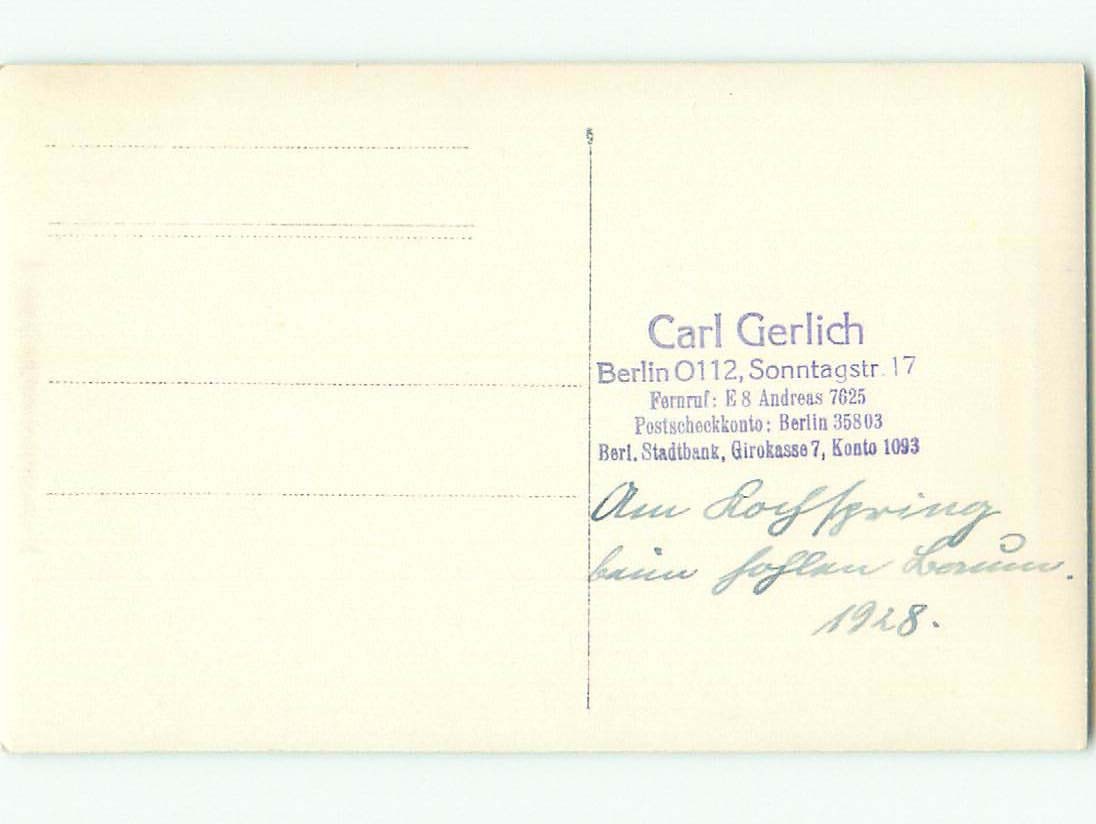 Carl Gerlich
Berlin O112, Sonntagstr. 17
Fernruf: E 8 Andreas 7625
Postscheckkonto: Berlin 35803
Berl. Stadtbank, Girokasse 7, Konto 1093
Am
beim hohlen Baum.
1928.